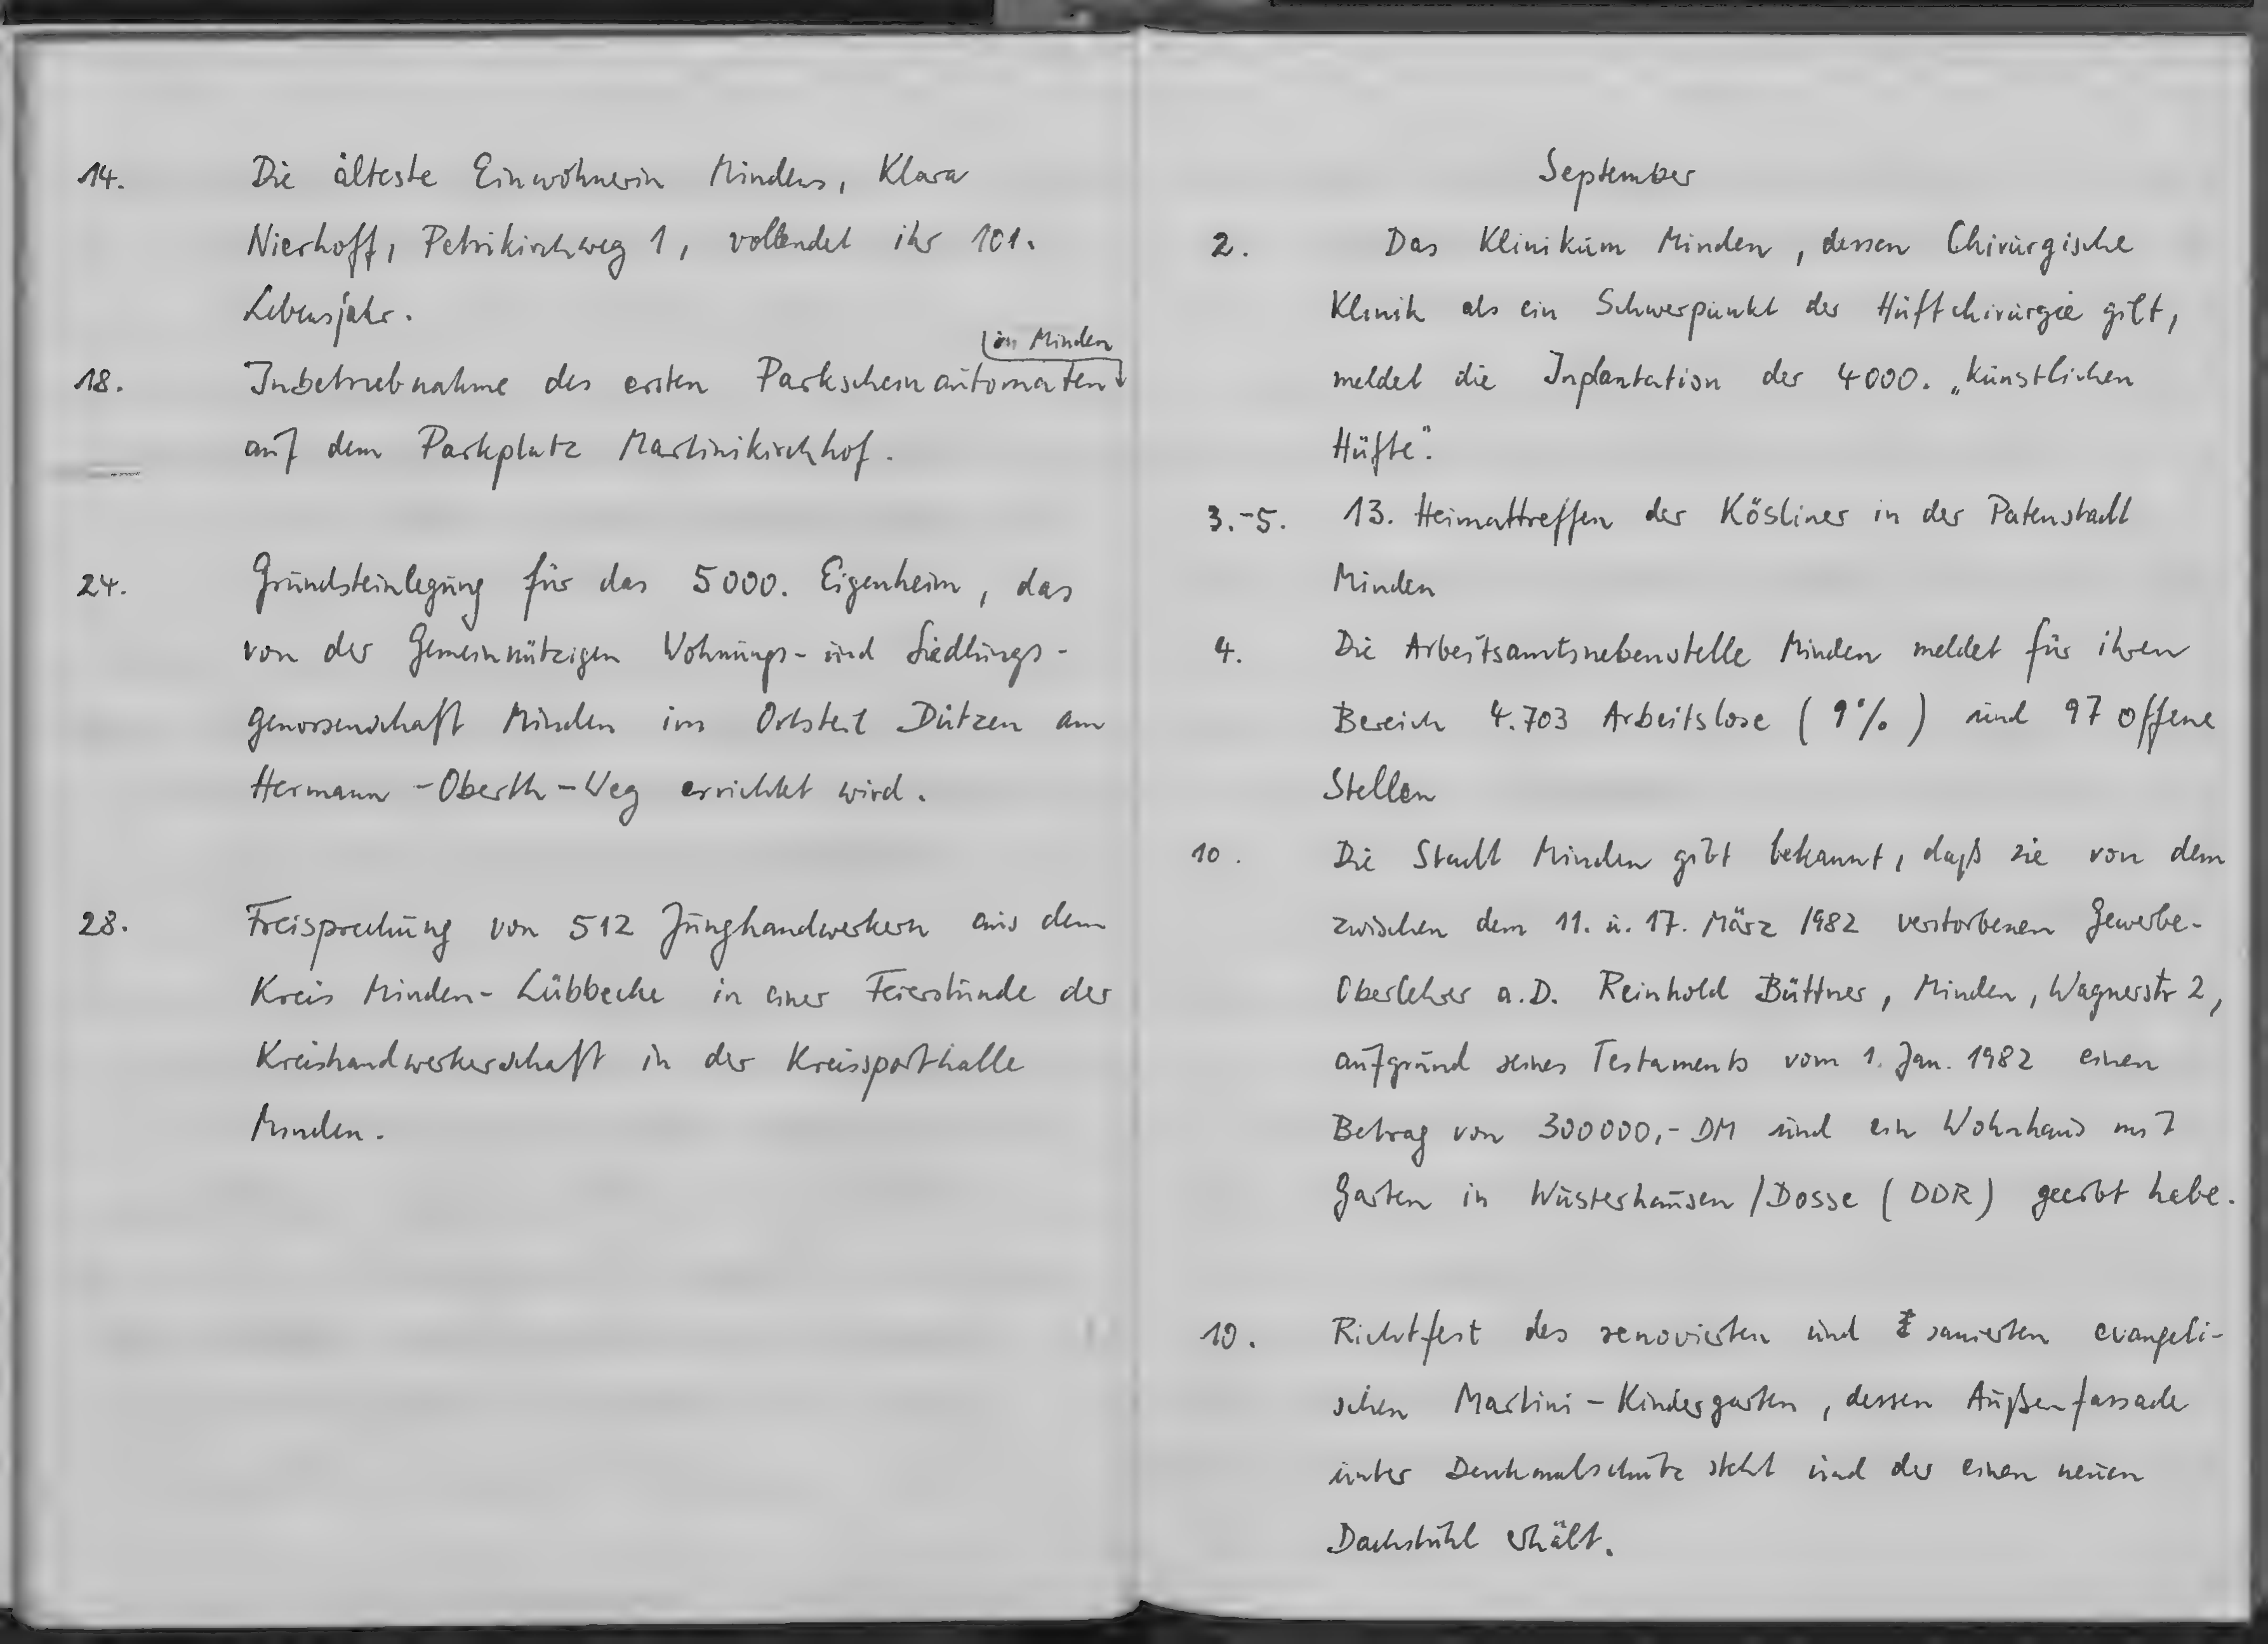 14. Die älteste Einwohnerin Mindens, Klara
Nierhoff, Petrikirchweg 1, vollendet ihr 101.
Lebensjahr.
in Minden
18. Inbetriebnahme des ersten Parkscheinautomaten
auf dem Parkplatz Martinikirchhof.
24. Grundsteinlegung für das 5000. Eigenheim, das
von der Gemeinnützigen Wohnungs- und Siedlungs-
genossenschaft Minden im Ortsteil Dützen am
Hermann-Oberth-Weg errichtet wird.
28. Freisprechung von 512 Junghandwerkern aus dem
Kreis Minden-Lübbecke in einer Feierstunde der
Kreishandwerkerschaft in der Kreissporthalle
Minden.
September
2. Das Klinikum Minden, dessen Chirurgische
Klinik als ein Schwerpunkt der Hüftchirurgie gilt,
meldet die Inplantation der 4000. „künstlichen
Hüfte".
3.-5. 13. Heimattreffen der Kösliner in der Patenstadt
Minden
4. Die Arbeitsamtsnebenstelle Minden meldet für ihren
Bereich 4.703 Arbeitslose (9%) und 97 offene
Stellen
10. Die Stadt Minden gibt bekannt, daß sie von dem
zwischen dem 11. u. 17. März 1982 verstorbenen Gewerbe-
Oberlehrer a.D. Reinhold Büttner, Minden, Wagnerstr 2,
aufgrund seines Testaments vom 1. Jan. 1982 einen
Betrag von 300000,- DM und ein Wohnhaus mit
Garten in Wusterhausen/Dosse (DDR) geerbt habe.
10. Richtfest des renovierten und sanierten evangeli-
schen Martini-Kindergarten, dessen Außenfassade
unter Denkmalschutz steht und der einen neuen
Dachstuhl erhält.